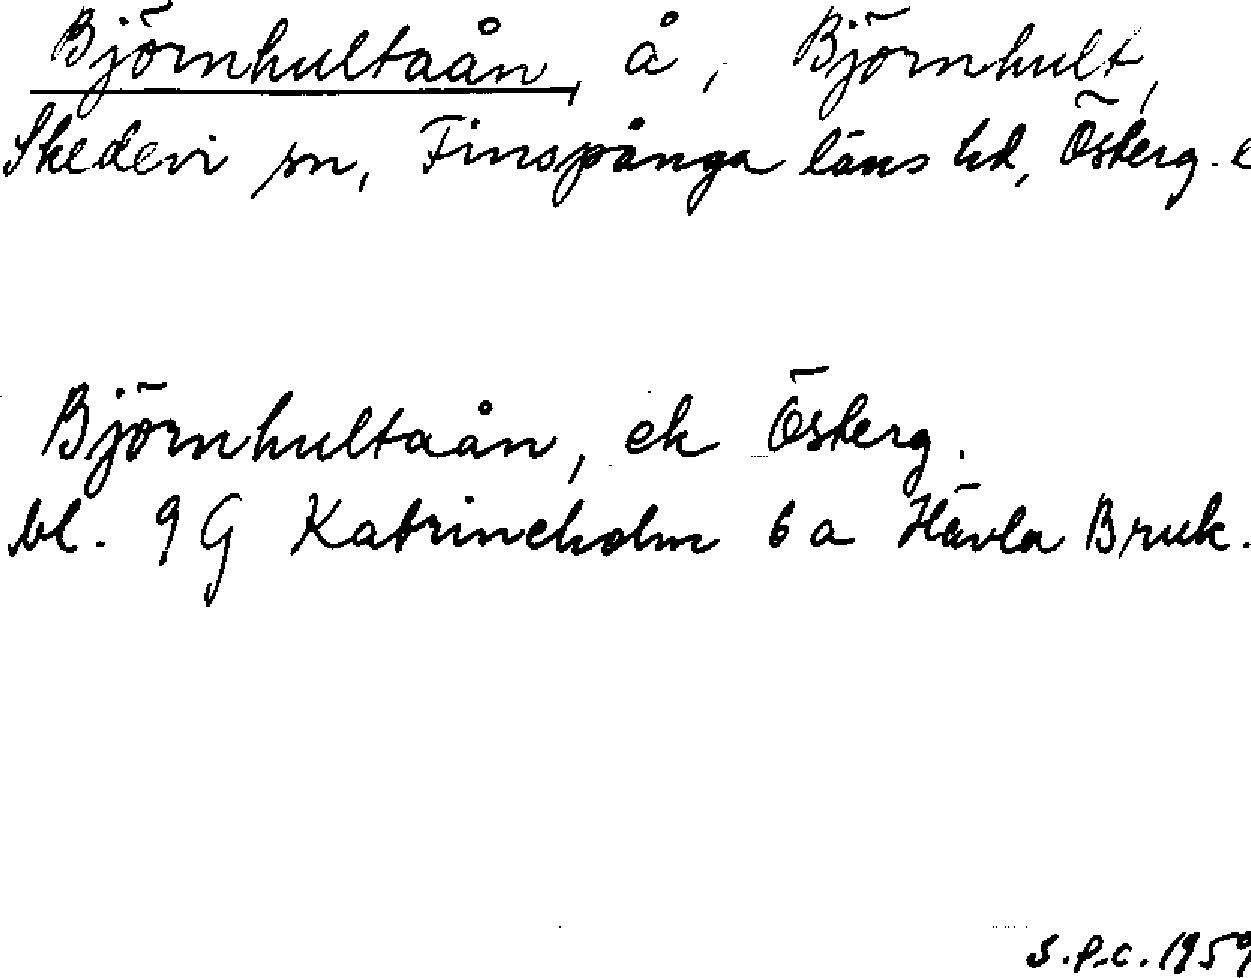 Björnhultaån, å, Björnhult,
Skedevi sn, Finspånga läns hd, Österg. l
Björnhultaån, ek Österg.
bl. 9 G Katrineholm 6 a Hävla Bruk.
S.P.C. 1959